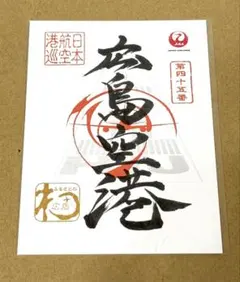 日本
航空
港巡
第四十五番
広島空港